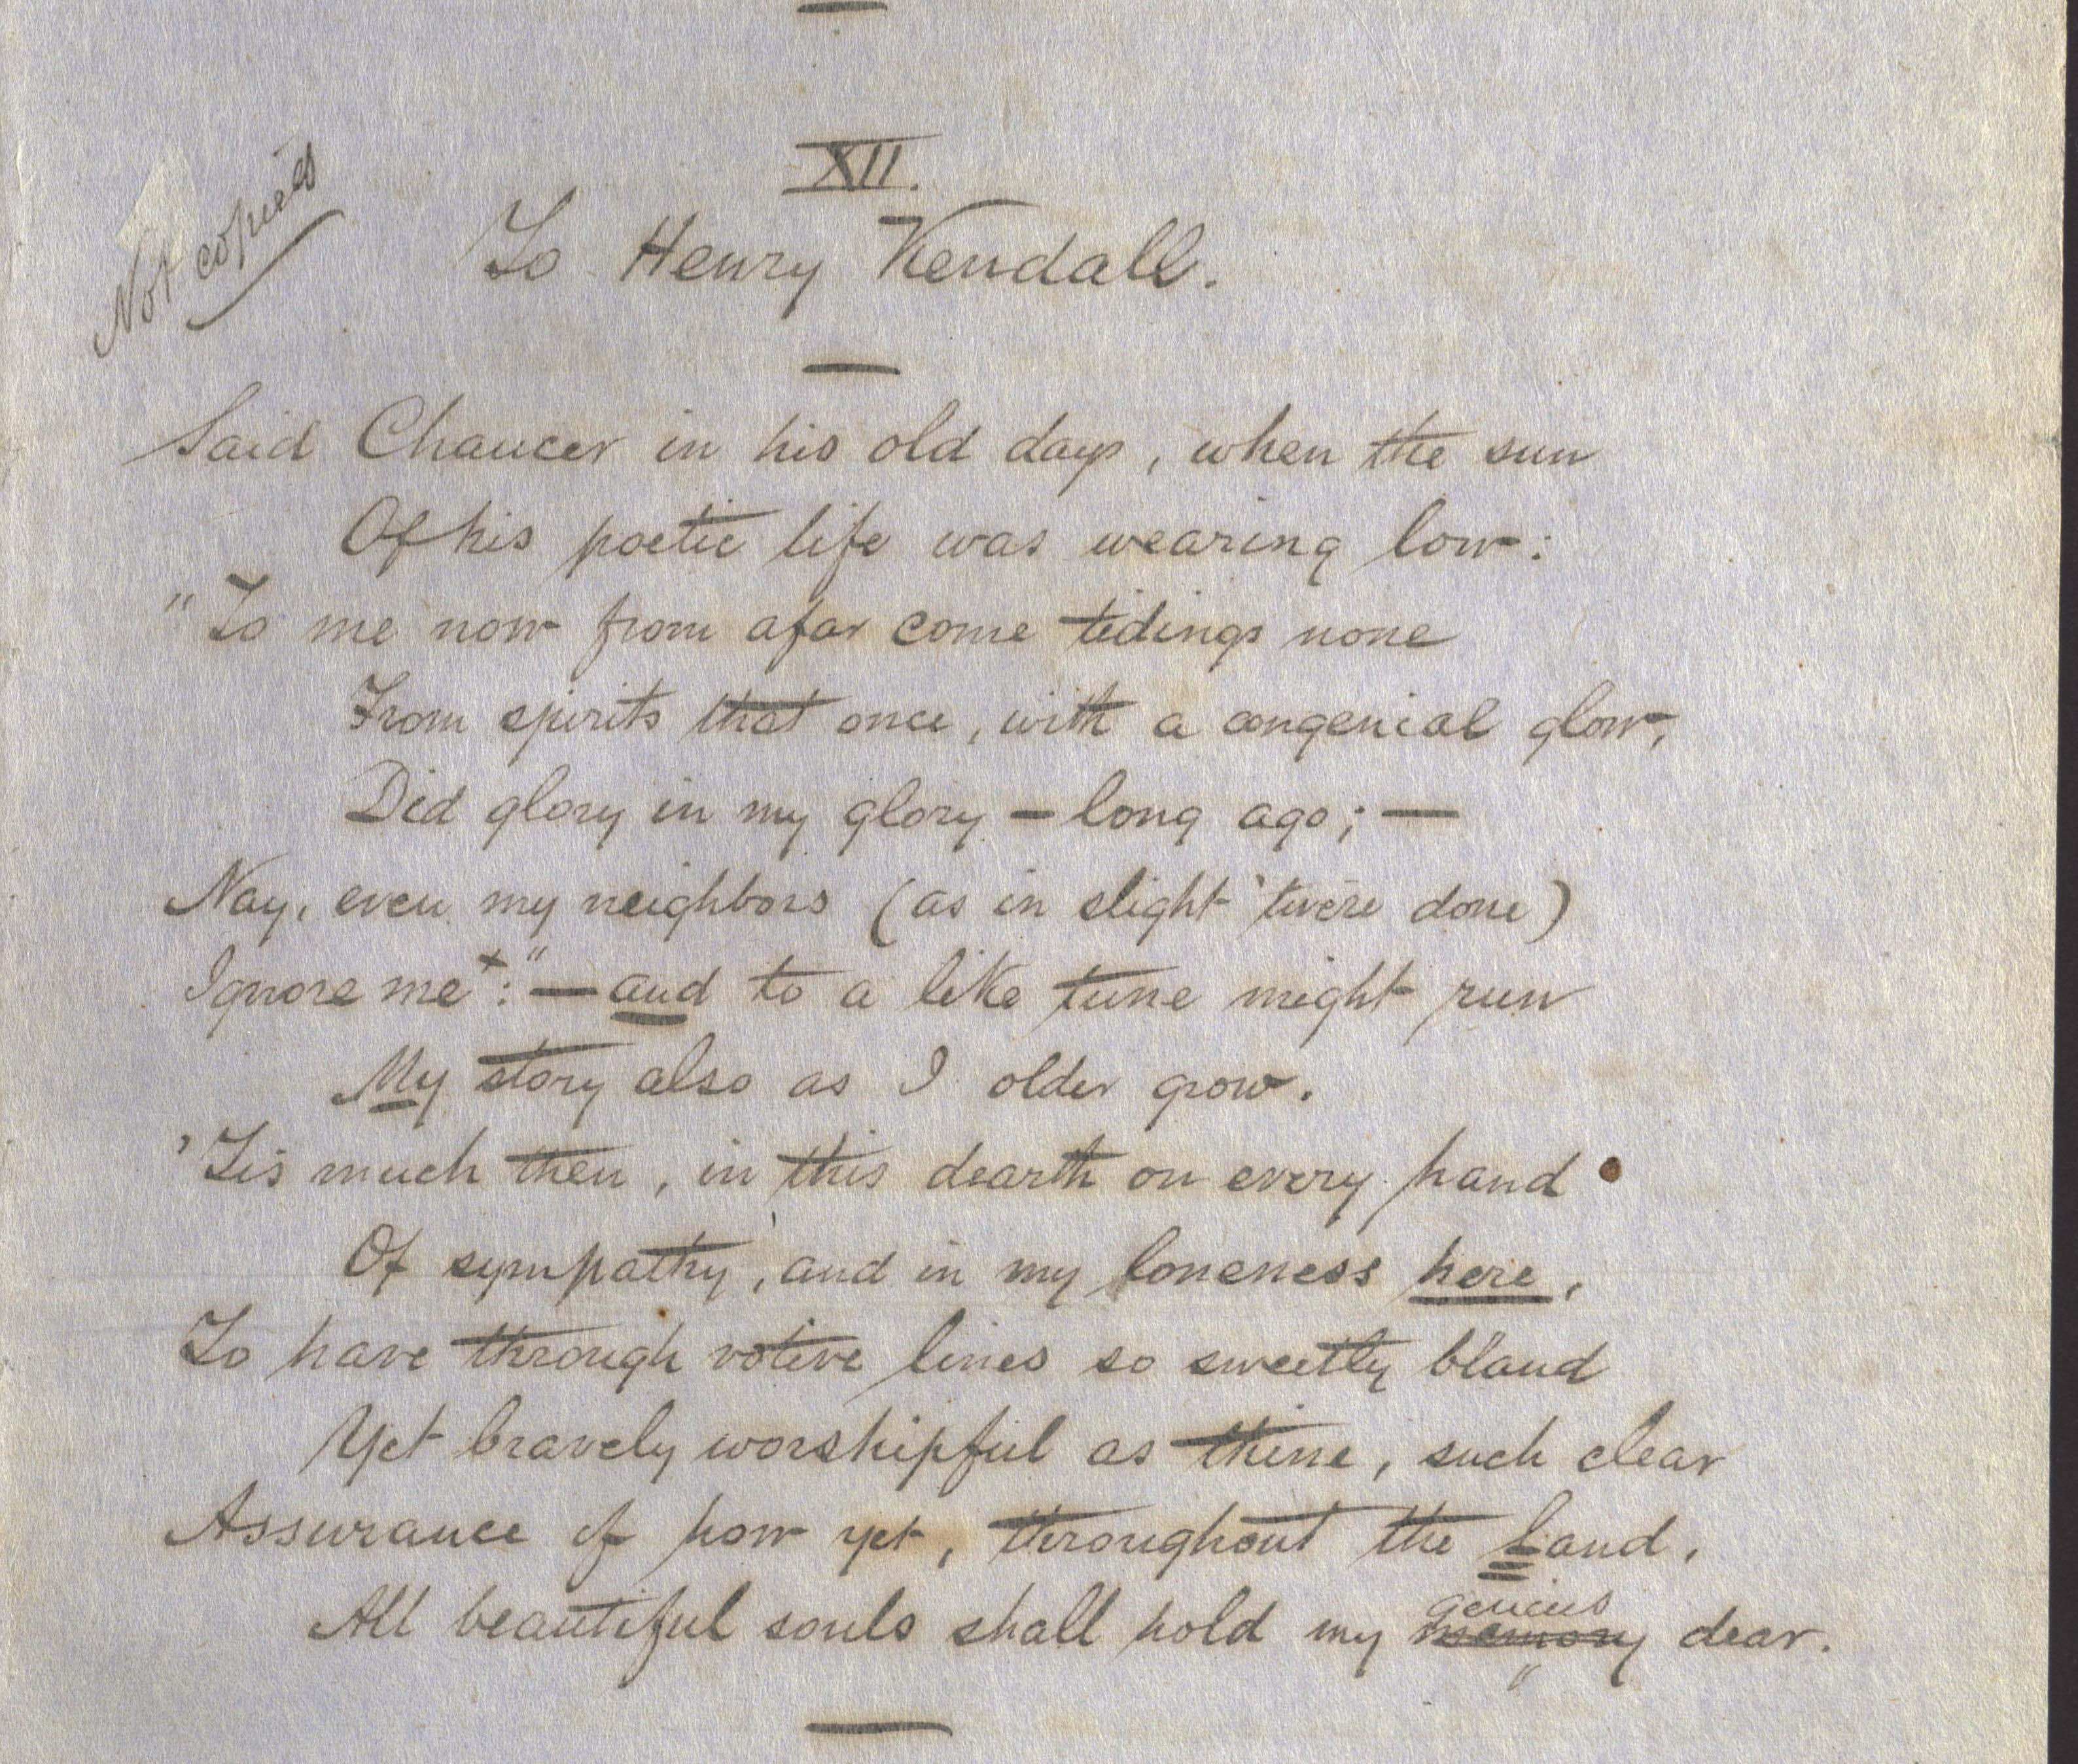 XII.
Not copied
To Henry Kendall.
Said Chaucer in his old days, when the sun
Of his poetic life was wearing low:
"To me now from afar come tidings none
From spirits that once, with a congenial glow,
Did glory in my glory — long ago; —
Nay, even my neighbors (as in slight 'twere done)
Ignore me+:" — and to a like tune might run
My story also as I older grow.
'Tis much then, in this dearth on every hand
Of sympathy, and in my loneness here,
To have through votive lines so sweetly bland
Yet bravely worshipful as thine, such clear
Assurance of how yet, throughout the Land,
genius
All beautiful souls shall hold my memory dear.